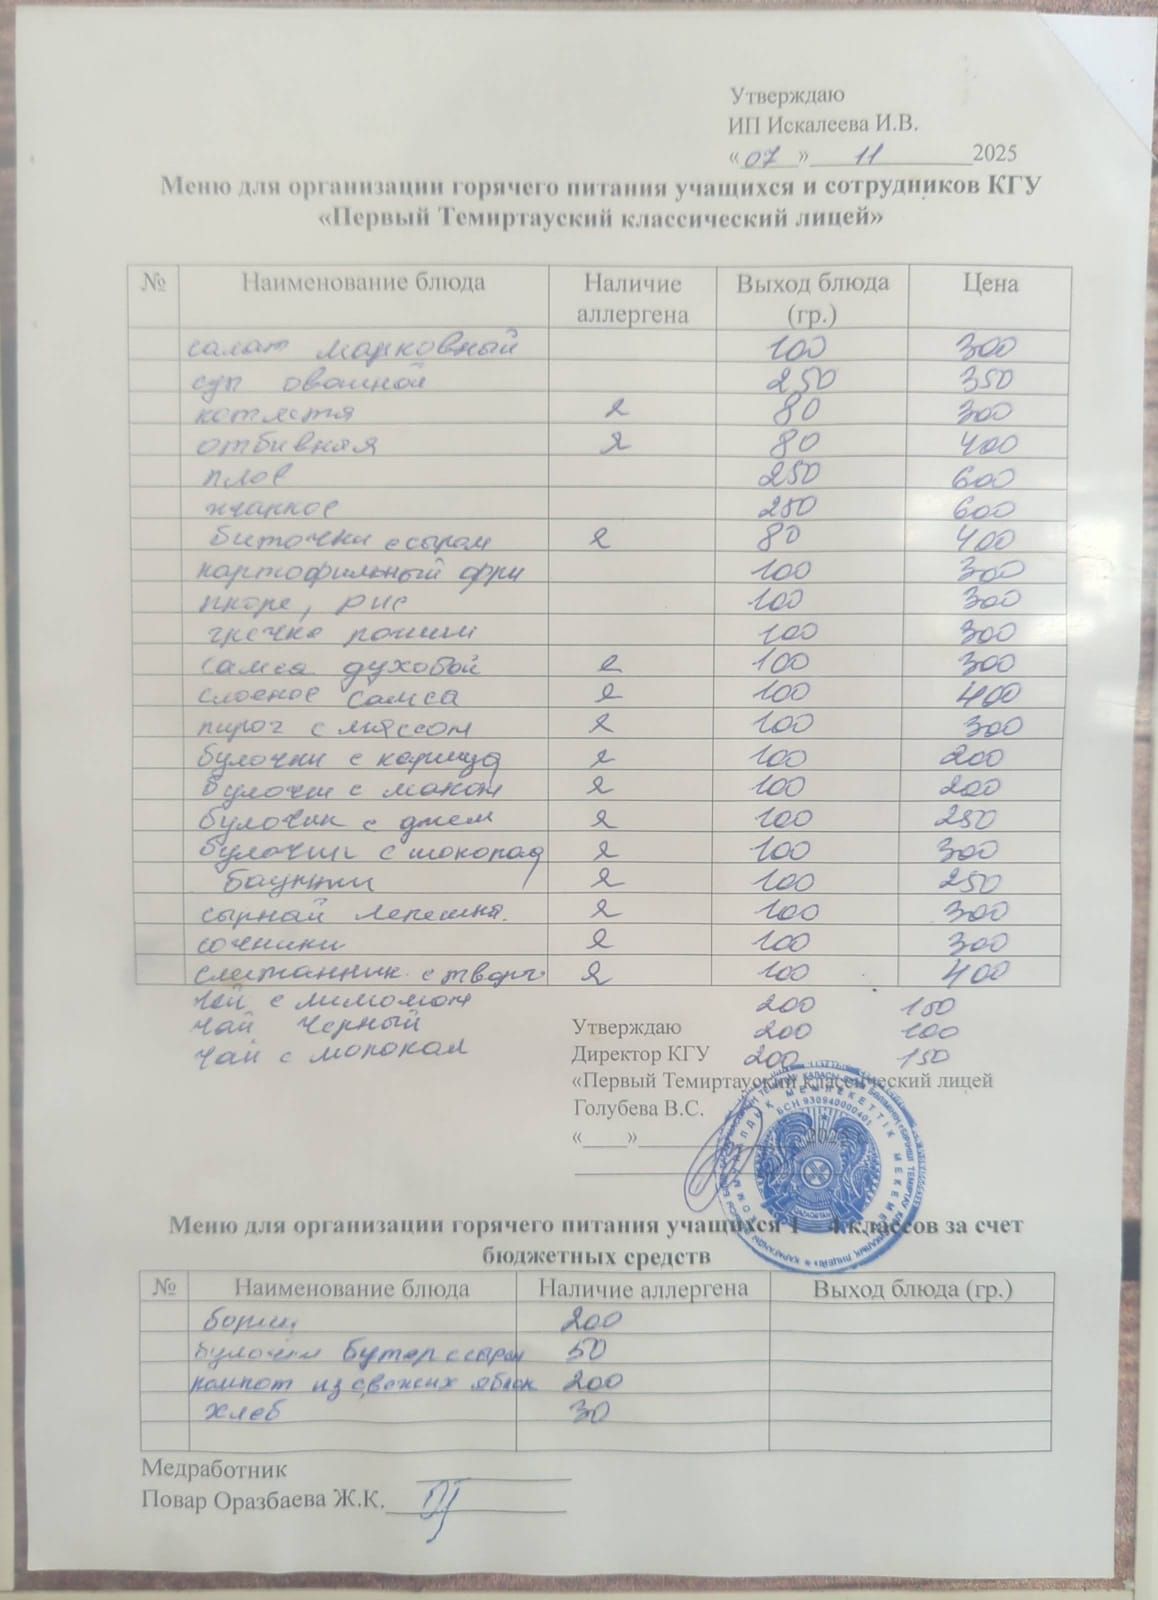 Утверждаю
ИП Искалеева И.В.
«07» 11 2025
Меню для организации горячего питания учащихся и сотрудников КГУ
«Первый Темиртауский классический лицей»
№ Наименование блюда Наличие аллергена Выход блюда (гр.) Цена
салат марковный 100 300
суп овощной 250 350
котлета я 80 300
отбивная я 80 400
плов 250 600
жаркое 250 600
биточки с сыром я 80 400
картофильный фри 100 300
пюре, рис 100 300
гречка рожки 100 300
самса духовой я 100 300
слоеное самса я 100 400
пирог с мясом я 100 300
булочки с корицой я 100 200
булочки с маком я 100 200
булочки с джем я 100 250
булочки с шоколад я 100 300
баунти я 100 250
сырнай лепешка. я 100 300
сочники я 100 300
сметанник с творг я 100 400
чай с лимоном 200 150
чай черный 200 100
чай с молоком 200 150
Утверждаю
Директор КГУ
«Первый Темиртауский классический лицей
Голубева В.С.
«____»
БСН 930940000401
Меню для организации горячего питания учащихся 1 4 классов за счет
бюджетных средств
№ Наименование блюда Наличие аллергена Выход блюда (гр.)
борщ 200
булочки бутер с сыром 50
компот из свежих яблок 200
хлеб 30
Медработник
Повар Оразбаева Ж.К.